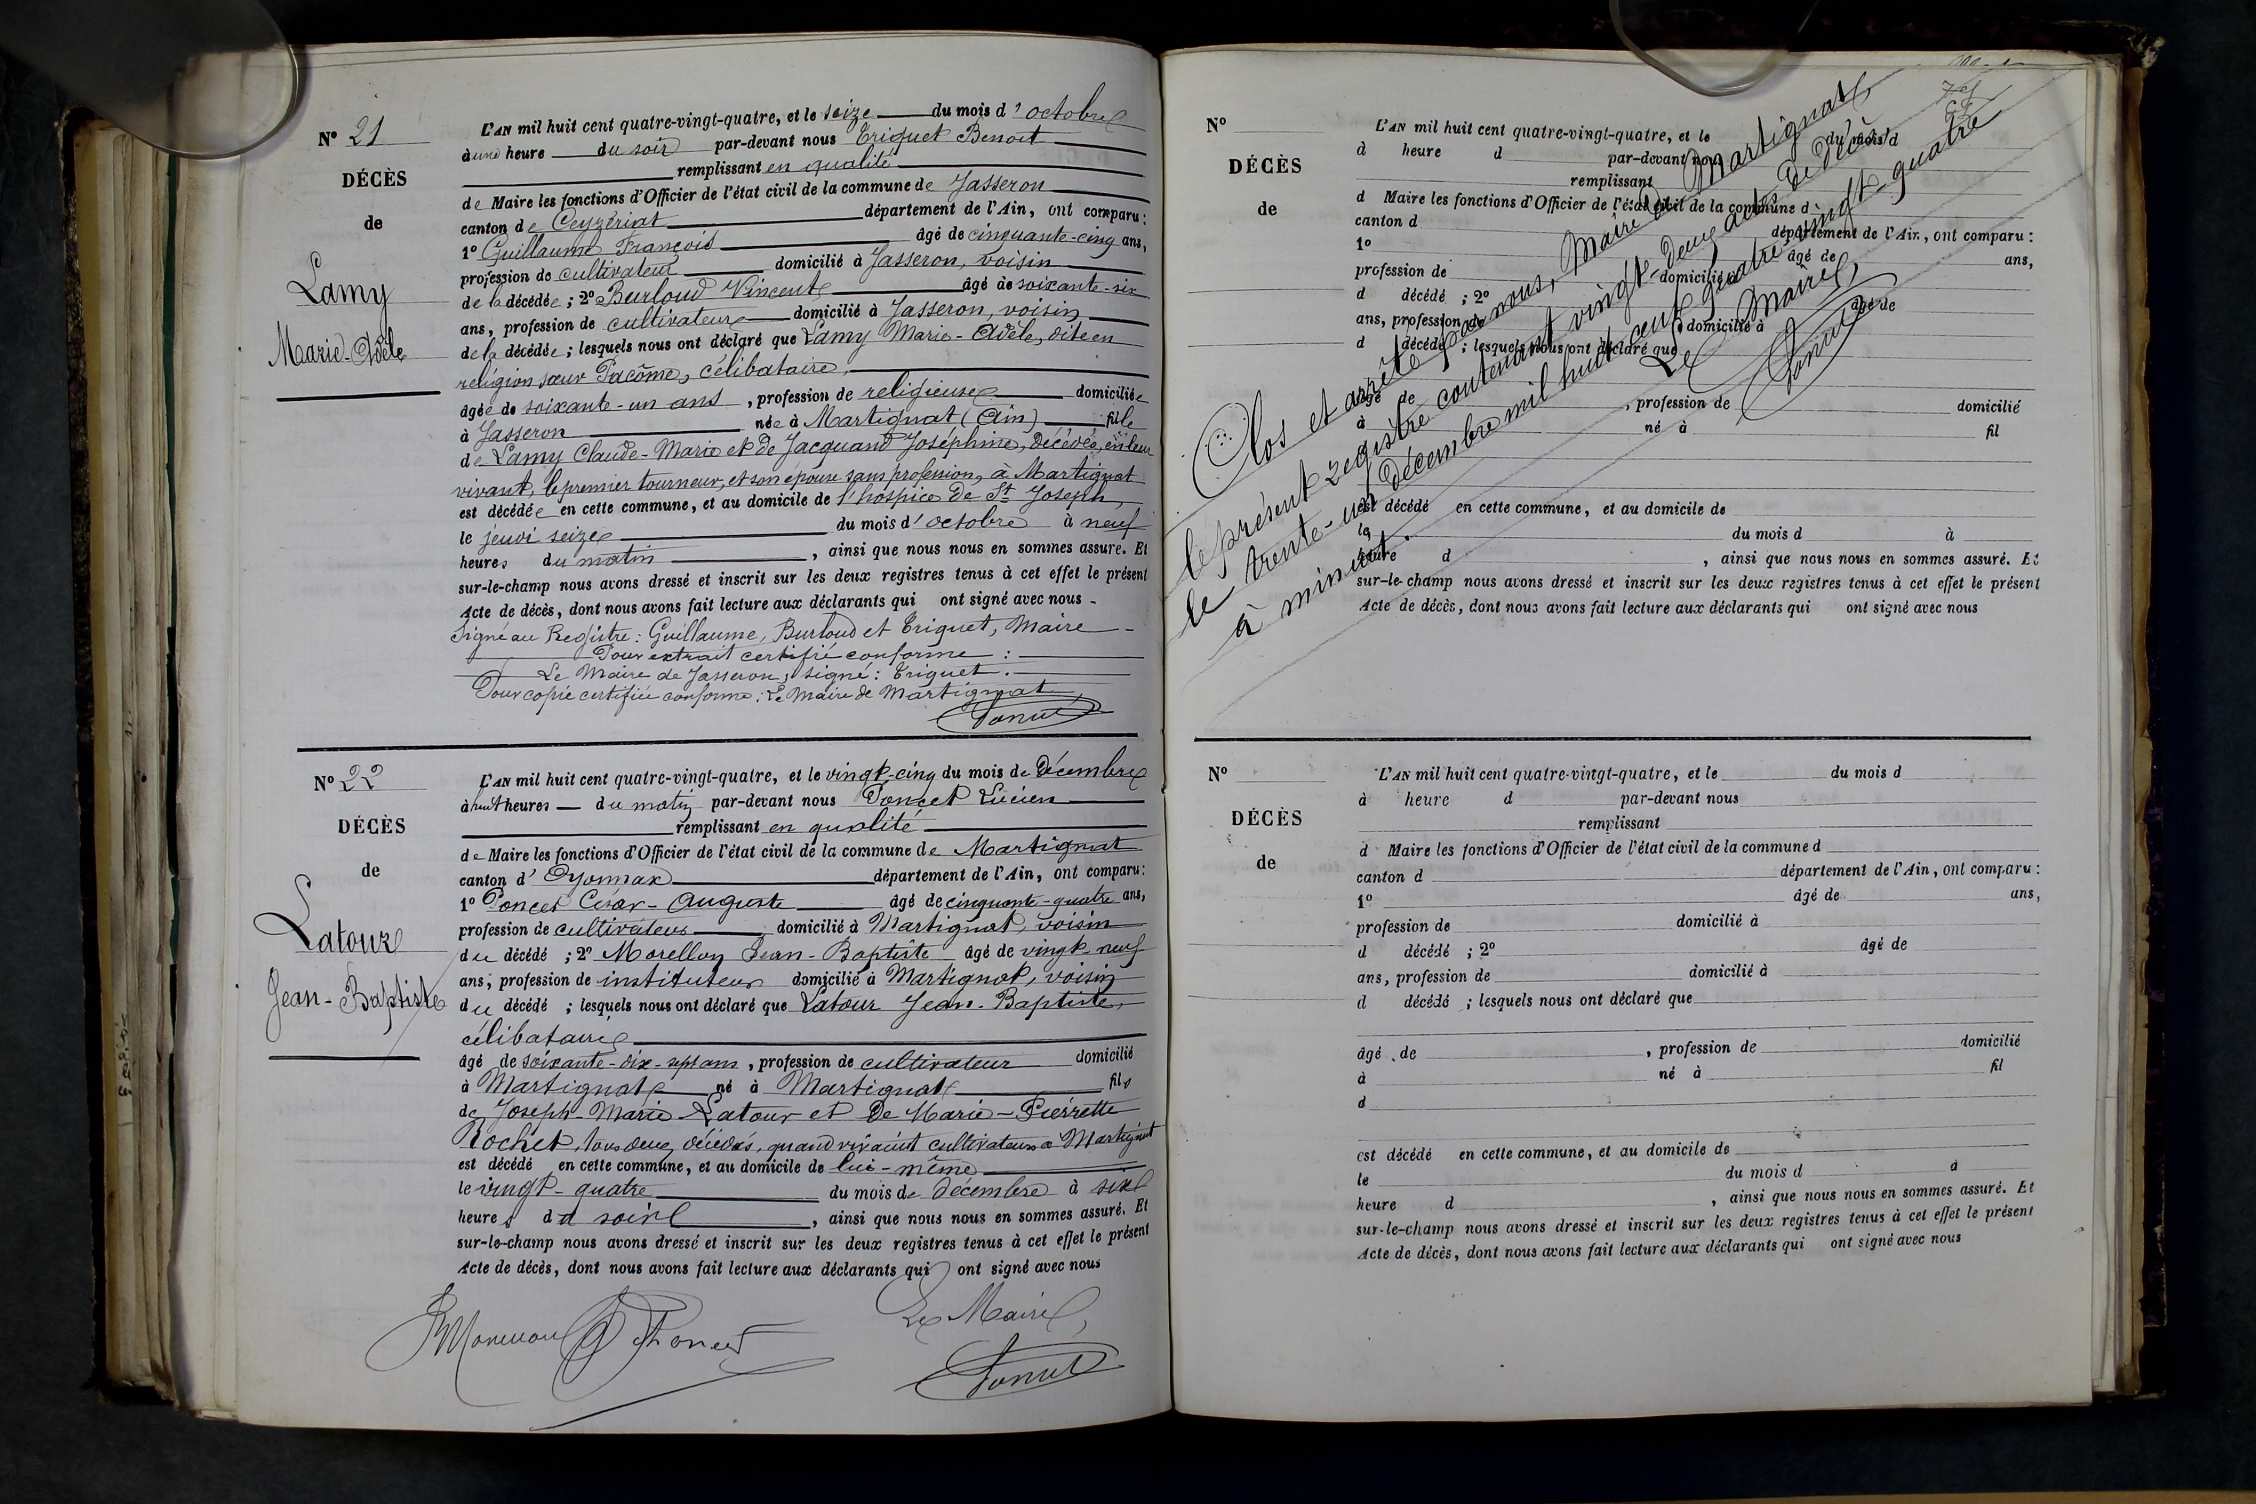 N° 21
DÉCÈS
de
Lamy
Marie-Adèle
L'AN mil huit cent quatre-vingt-quatre, et le seize du mois d'octobre
à une heure du soir par-devant nous Triquet Benoit
remplissant en qualité
de Maire les fonctions d'Officier de l'état civil de la commune de Jasseron
canton de Ceyzériat département de l'Ain, ont comparu :
1° Guillaume François âgé de cinquante-cinq ans,
profession de cultivateur domicilié à Jasseron, voisin
de la décédée ; 2° Burloud Vincent âgé de soixante-six
ans, profession de cultivateur domicilié à Jasseron, voisin
de la décédée ; lesquels nous ont déclaré que Lamy Marie-Adèle, dite en
religion sœur Pacôme, célibataire,
âgée de soixante-un ans, profession de religieuse domiciliée
à Jasseron née à Martignat (Ain) fille
de Lamy Claude-Marie et de Jacquand Joséphine, décédés, en leur
vivant, le premier tourneur, et son épouse sans profession, à Martignat
est décédée en cette commune, et au domicile de l'hospice de St Joseph,
le jeudi seize du mois d'octobre à neuf
heures du matin, ainsi que nous nous en sommes assuré. Et
sur-le-champ nous avons dressé et inscrit sur les deux registres tenus à cet effet le présent
Acte de décès, dont nous avons fait lecture aux déclarants qui ont signé avec nous -
Signé au Registre : Guillaume, Burloud et Triquet, Maire -
Pour extrait certifié conforme :
Le Maire de Jasseron, signé : Triquet.
Pour copie certifiée conforme : Le Maire de Martignat,
Poncet
N° 22
DÉCÈS
de
Latour
Jean-Baptiste
L'AN mil huit cent quatre-vingt-quatre, et le vingt-cinq du mois de Décembre
à huit heures - du matin par-devant nous Poncet Lucien
remplissant en qualité
de Maire les fonctions d'Officier de l'état civil de la commune de Martignat
canton d'Oyonnax département de l'Ain, ont comparu :
1° Poncet César-Auguste âgé de cinquante-quatre ans,
profession de cultivateur domicilié à Martignat, voisin
du décédé ; 2° Morellon Jean-Baptiste âgé de vingt-neuf
ans, profession de instituteur domicilié à Martignat, voisin
du décédé ; lesquels nous ont déclaré que Latour Jean-Baptiste,
célibataire
âgé de soixante-dix-sept ans, profession de cultivateur domicilié
à Martignat né à Martignat fils
de Joseph-Marie Latour et de Marie-Pierrette
Rochet, tous deux décédés, quand vivaient cultivateurs à Martignat
est décédé en cette commune, et au domicile de lui-même
le vingt-quatre du mois de décembre à six
heures du soir, ainsi que nous nous en sommes assuré. Et
sur-le-champ nous avons dressé et inscrit sur les deux registres tenus à cet effet le présent
Acte de décès, dont nous avons fait lecture aux déclarants qui ont signé avec nous
Le Maire,
Poncet
N°
DÉCÈS
de
L'AN mil huit cent quatre-vingt-quatre, et le du mois d
à heure d par-devant nous
remplissant
d Maire les fonctions d'Officier de l'état civil de la commune d
canton d département de l'Ain, ont comparu :
1° âgé de ans,
profession de domicilié à
d décédé ; 2° âgé de
ans, profession de domicilié à
d décédé ; lesquels nous ont déclaré que
âgé de , profession de domicilié
à né à fil
est décédé en cette commune, et au domicile de
le du mois d à
heure d , ainsi que nous nous en sommes assuré. Et
sur-le-champ nous avons dressé et inscrit sur les deux registres tenus à cet effet le présent
Acte de décès, dont nous avons fait lecture aux déclarants qui ont signé avec nous
Clos et arrêté par nous, Maire de Martignat,
le présent registre contenant vingt-deux actes de décès
le trente-un décembre mil huit cent quatre-vingt-quatre
à minuit.
Le Maire,
Poncet
N°
DÉCÈS
de
L'AN mil huit cent quatre-vingt-quatre, et le du mois d
à heure d par-devant nous
remplissant
d Maire les fonctions d'Officier de l'état civil de la commune d
canton d département de l'Ain, ont comparu :
1° âgé de ans,
profession de domicilié à
d décédé ; 2° âgé de
ans, profession de domicilié à
d décédé ; lesquels nous ont déclaré que
âgé de , profession de domicilié
à né à fil
d
est décédé en cette commune, et au domicile de
le du mois d à
heure d , ainsi que nous nous en sommes assuré. Et
sur-le-champ nous avons dressé et inscrit sur les deux registres tenus à cet effet le présent
Acte de décès, dont nous avons fait lecture aux déclarants qui ont signé avec nous